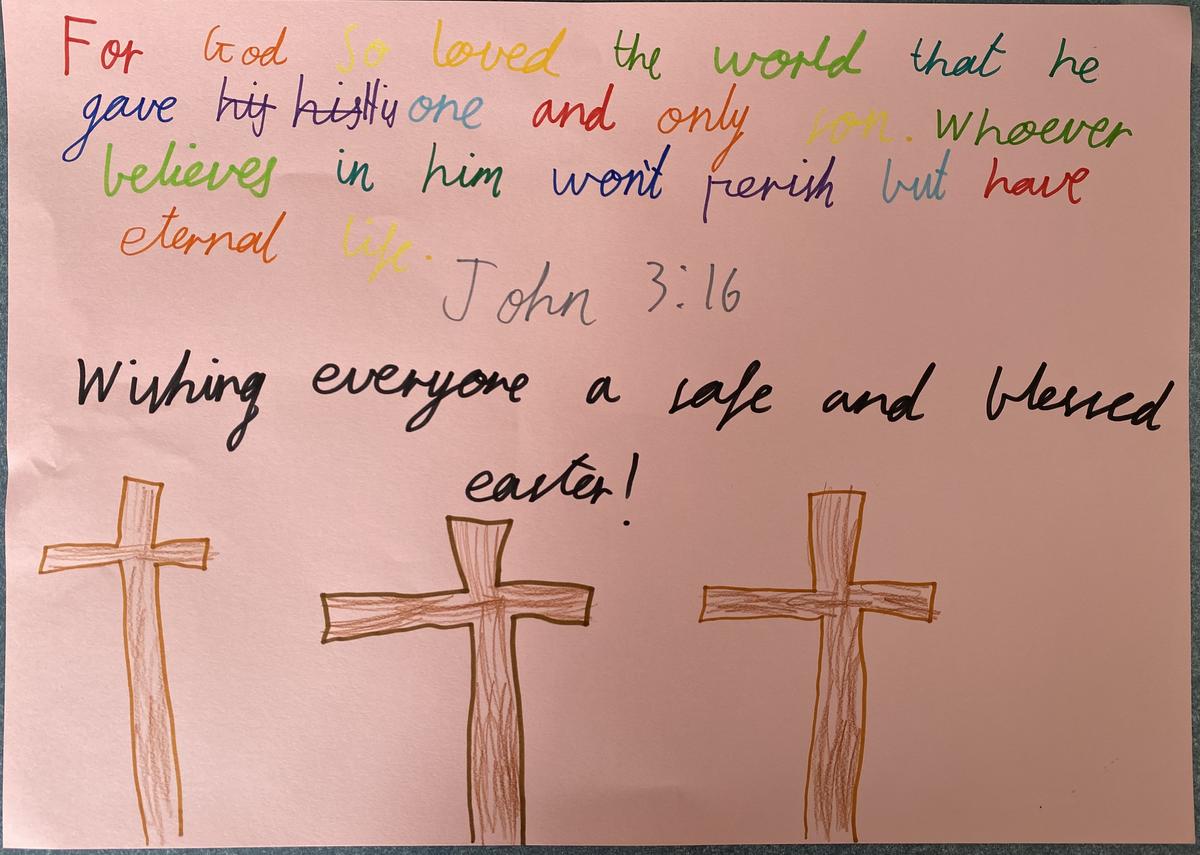 For God so loved the world that he
gave his his His one and only son. Whoever
believes in him won't perish but have
eternal life.
John 3:16
Wishing everyone a safe and blessed
easter!